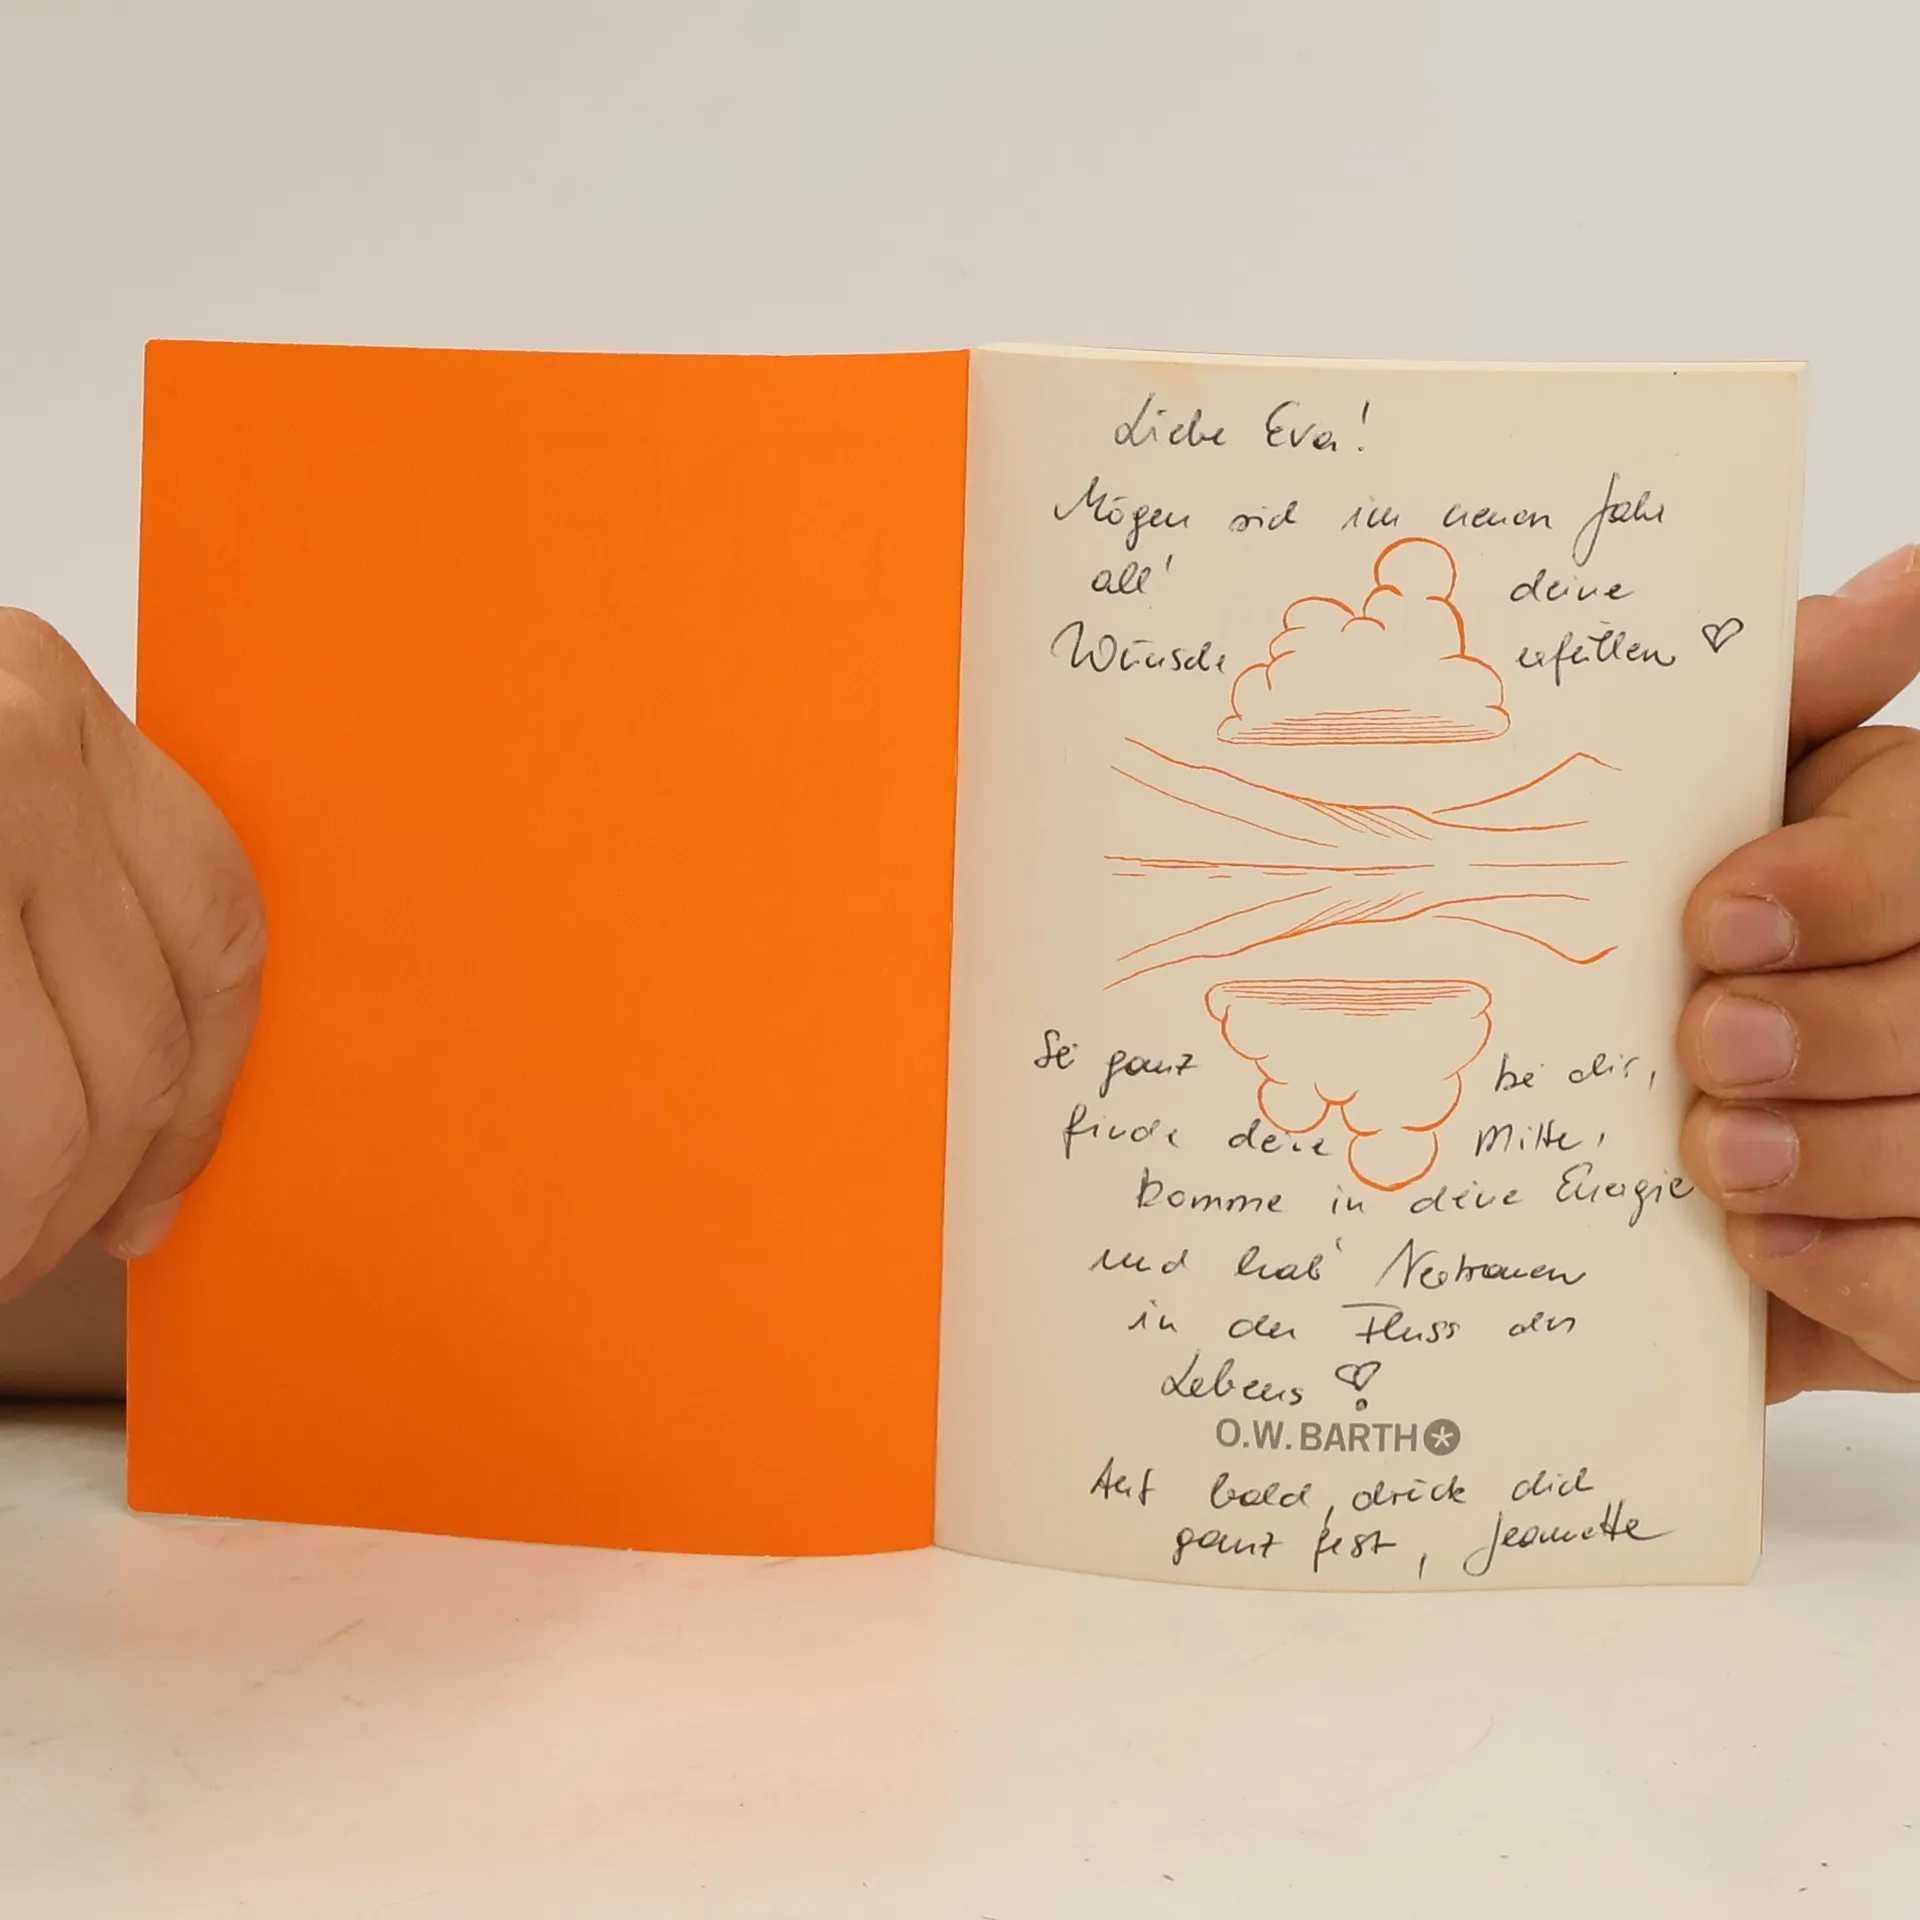 Liebe Eva!
Mögen sich im neuen Jahr
all' deine
Wünsche erfüllen ♡
Sei ganz bei dir,
finde deine Mitte,
komme in deine Energie
und hab' Vertrauen
in den Fluss des
Lebens
O.W. BARTH
Auf bald, drück dich
ganz fest, Jeanette